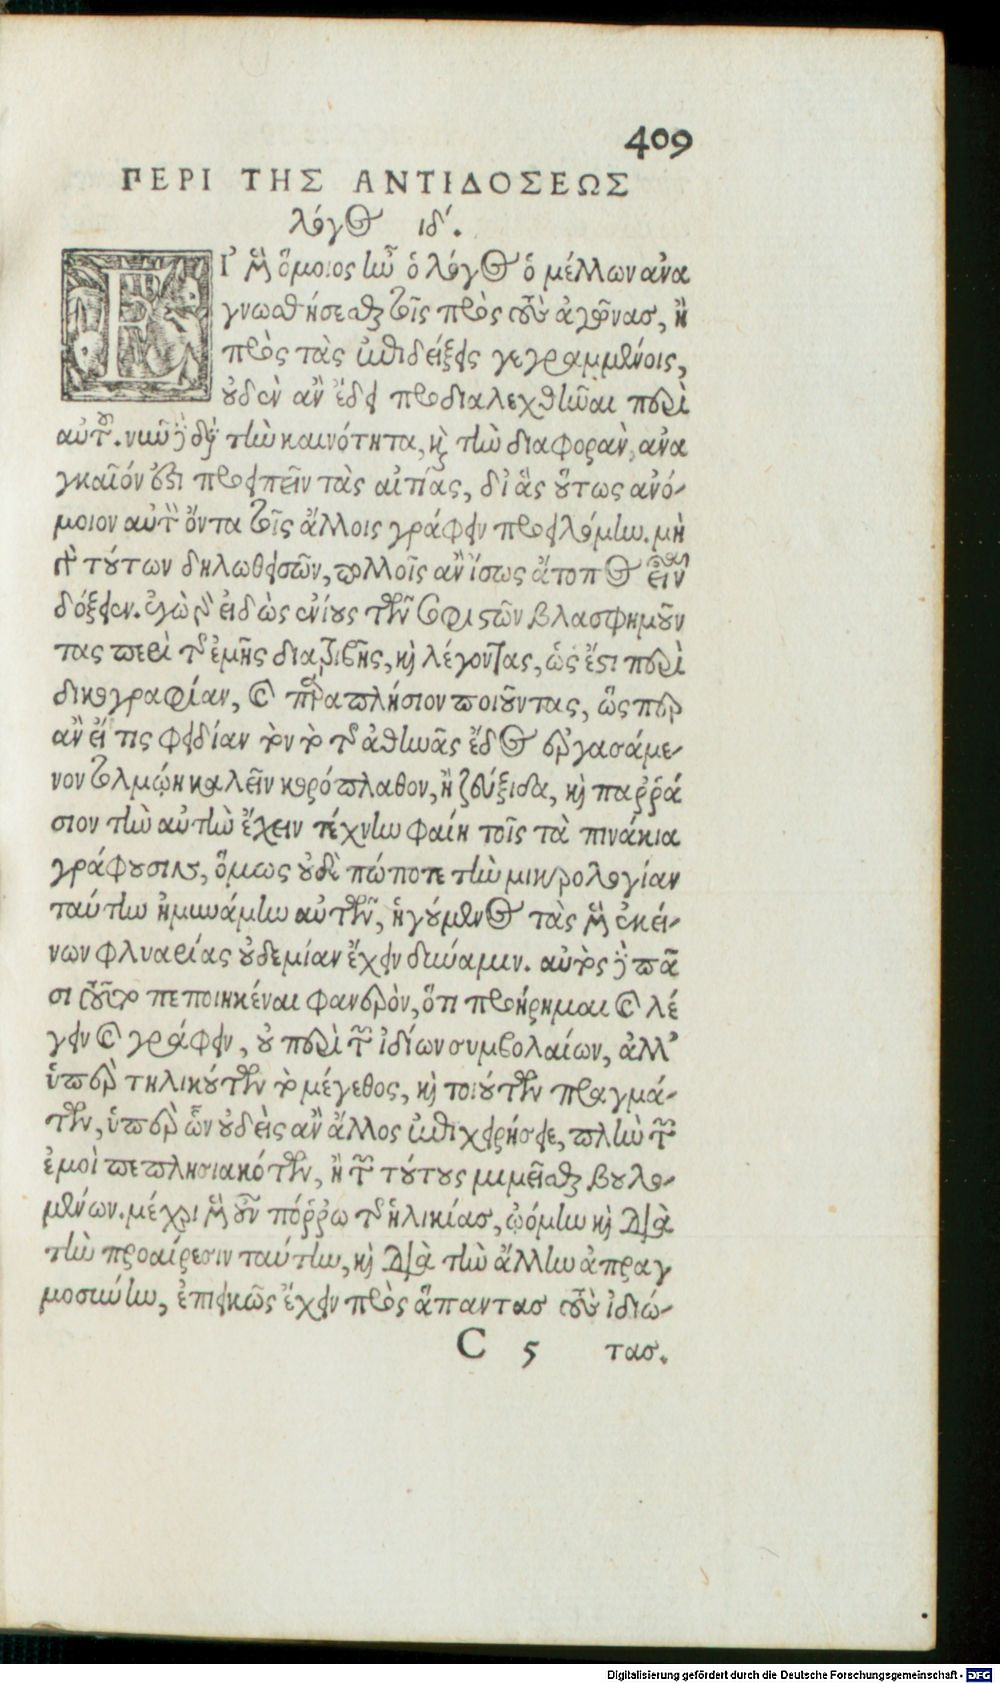 409
ΠΕΡΙ ΤΗΣ ΑΝΤΙΔΟΣΕΩΣ
λόγος ιδ´.
ΕΙ᾽ μὲν ὅμοιος ἦν ὁ λόγος ὁ μέλλων ἀνα
γνωσθήσεσθαι τοῖς πρὸς τοὺς ἀγῶνας, ἢ
πρὸς τὰς ἐπιδείξεις γεγραμμένοις,
οὐδὲν ἂν ἔδει προδιαλεχθῆναι περὶ
αὐτοῦ. νῦν δὲ διὰ τὴν καινότητα, καὶ τὴν διαφορὰν, ἀνα
γκαῖόν ἐστι προειπεῖν τὰς αἰτίας, δι᾽ ἃς οὕτως ἀνό-
μοιον αὐτὸν ὄντα τοῖς ἄλλοις γράφειν προειλόμην. μὴ
γὰρ τούτων δηλωθεισῶν, πολλοῖς ἂν ἴσως ἄτοπος εἶναι
δόξειεν. ἐγὼ γὰρ εἰδὼς ἐνίους τῶν σοφιστῶν βλασφημοῦν
τας περὶ τῆς ἐμῆς διατριβῆς, καὶ λέγοντας, ὡς ἔστι περὶ
δικογραφίαν, καὶ παραπλήσιον ποιοῦντας, ὥσπερ
ἂν εἴ τις φειδίαν τὸν τὸ τῆς ἀθηνᾶς ἕδος ἐργασάμε-
νον τολμῴη καλεῖν κοροπλάθον, ἢ ζεύξιδα, καὶ παῤῥά
σιον τὴν αὐτὴν ἔχειν τέχνην φαίη τοῖς τὰ πινάκια
γράφουσιν, ὅμως οὐδὲ πώποτε τὴν μικρολογίαν
ταύτην ἠμυνάμην αὐτῶν, ἡγούμενος τὰς μὲν ἐκεί-
νων φλυαρίας οὐδεμίαν ἔχειν δύναμιν. αὐτὸς δὲ πᾶ
σι τοῦτο πεποιηκέναι φανερὸν, ὅτι προῄρημαι καὶ λέ
γειν καὶ γράφειν, οὐ περὶ τῶν ἰδίων συμβολαίων, ἀλλ᾽
ὑπὲρ τηλικούτων τὸ μέγεθος, καὶ τοιούτων πραγμά-
των, ὑπὲρ ὧν οὐδεὶς ἂν ἄλλος ἐπιχειρήσειε, πλὴν τῶν
ἐμοὶ πεπλησιακότων, ἢ τῶν τούτους μιμεῖσθαι βουλο-
μένων. μέχρι μὲν οὖν πόῤῥω τῆς ἡλικίας, ᾠόμην καὶ διὰ
τὴν προαίρεσιν ταύτην, καὶ διὰ τὴν ἄλλην ἀπραγ
μοσύνην, ἐπιεικῶς ἔχειν πρὸς ἅπαντας τοὺς ἰδιώ-
C 5 τας.
Digitalisierung gefördert durch die Deutsche Forschungsgemeinschaft - DFG